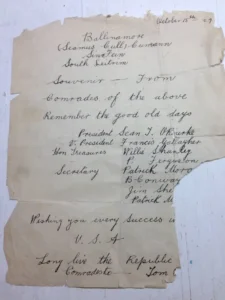 October 15th
Ballinamore
(Seamus Cull) Cumann
Sinn Fein
South Leitrim
Souvenir — From
Comrades of the above
Remember the good old days
President Sean T. O'Rourke
V. President Francis Gallagher
Hon Treasurers Willie Shanley
P. Ferguson
Secretary Patrick
B Conway
Jim
Patrick M
Wishing you every success
U. S. A
Long live the Republic
Comrade Tom